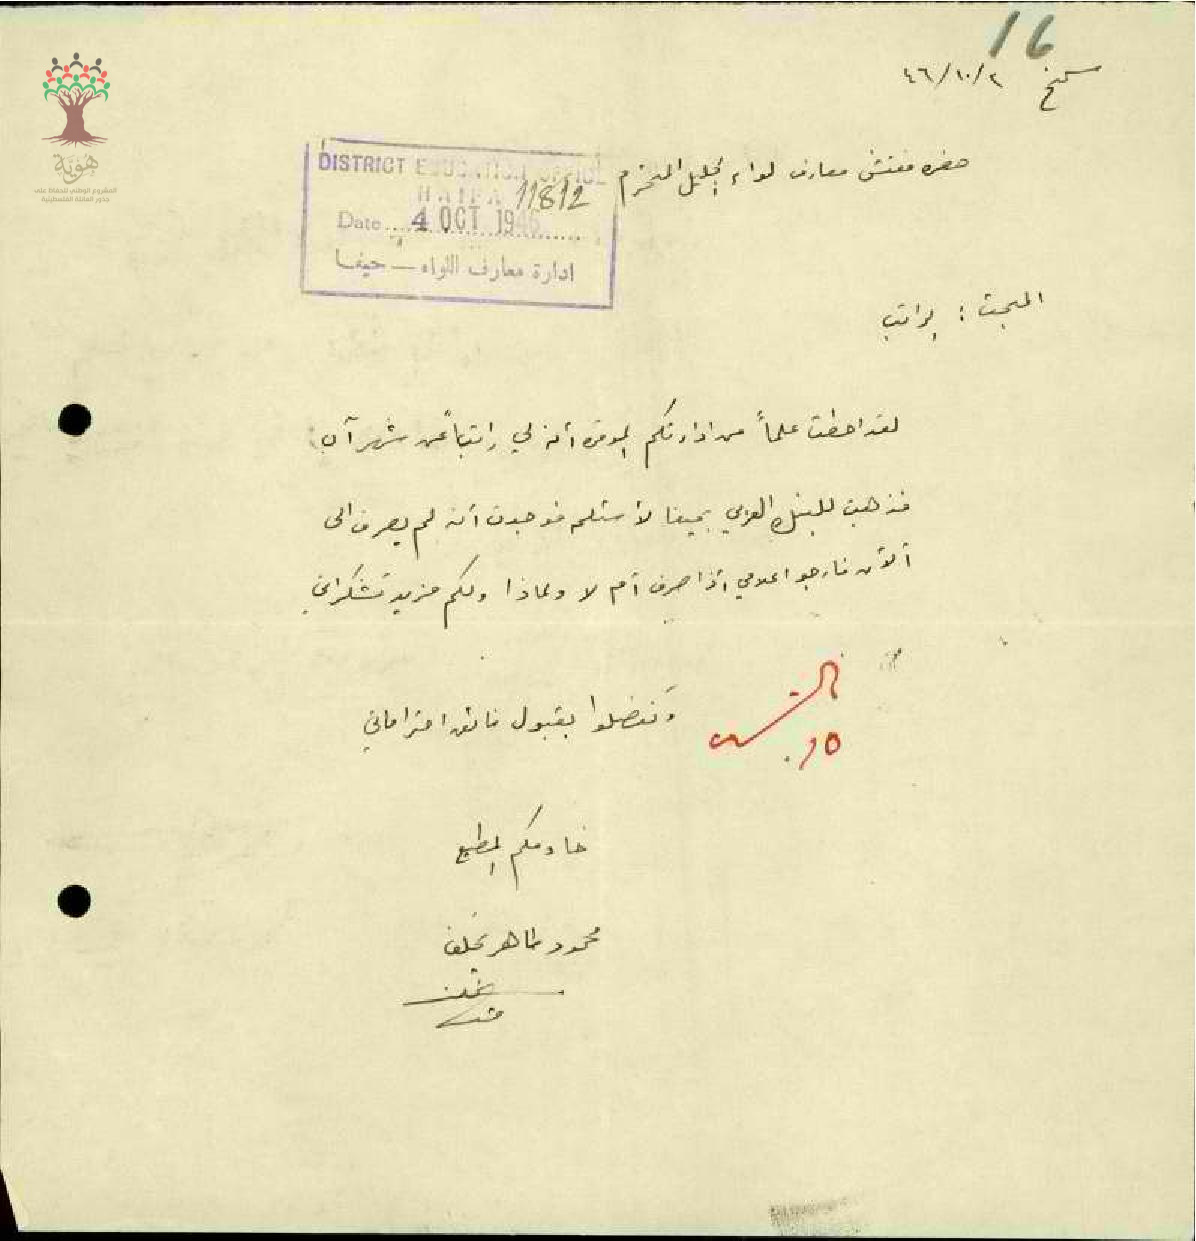 16
سمخ ٢/١٠/٤٦
هوية
المشروع الوطني للحفاظ على
جذور العائلة الفلسطينية
حضرة مفتش معارف لواء الجليل المحترم
DISTRICT EDUCATION OFFICE
HAIFA 11812
Date 4 OCT 1946
ادارة معارف اللواء – حيفا
المبحث : راتب
لقد احطت علماً من ادارتكم الموقرة أنه لي راتباً عن شهر آب
فذهبت للبنك العربي بحيفا لأستلمه فوجدت أنه لم يصرف الى
الآن فارجو اعلامي اذا صرف أم لا ولماذا ولكم مزيد تشكراتي
وتفضلوا بقبول فائق احتراماتي
خادمكم المطيع
محمود طاهر يخلف